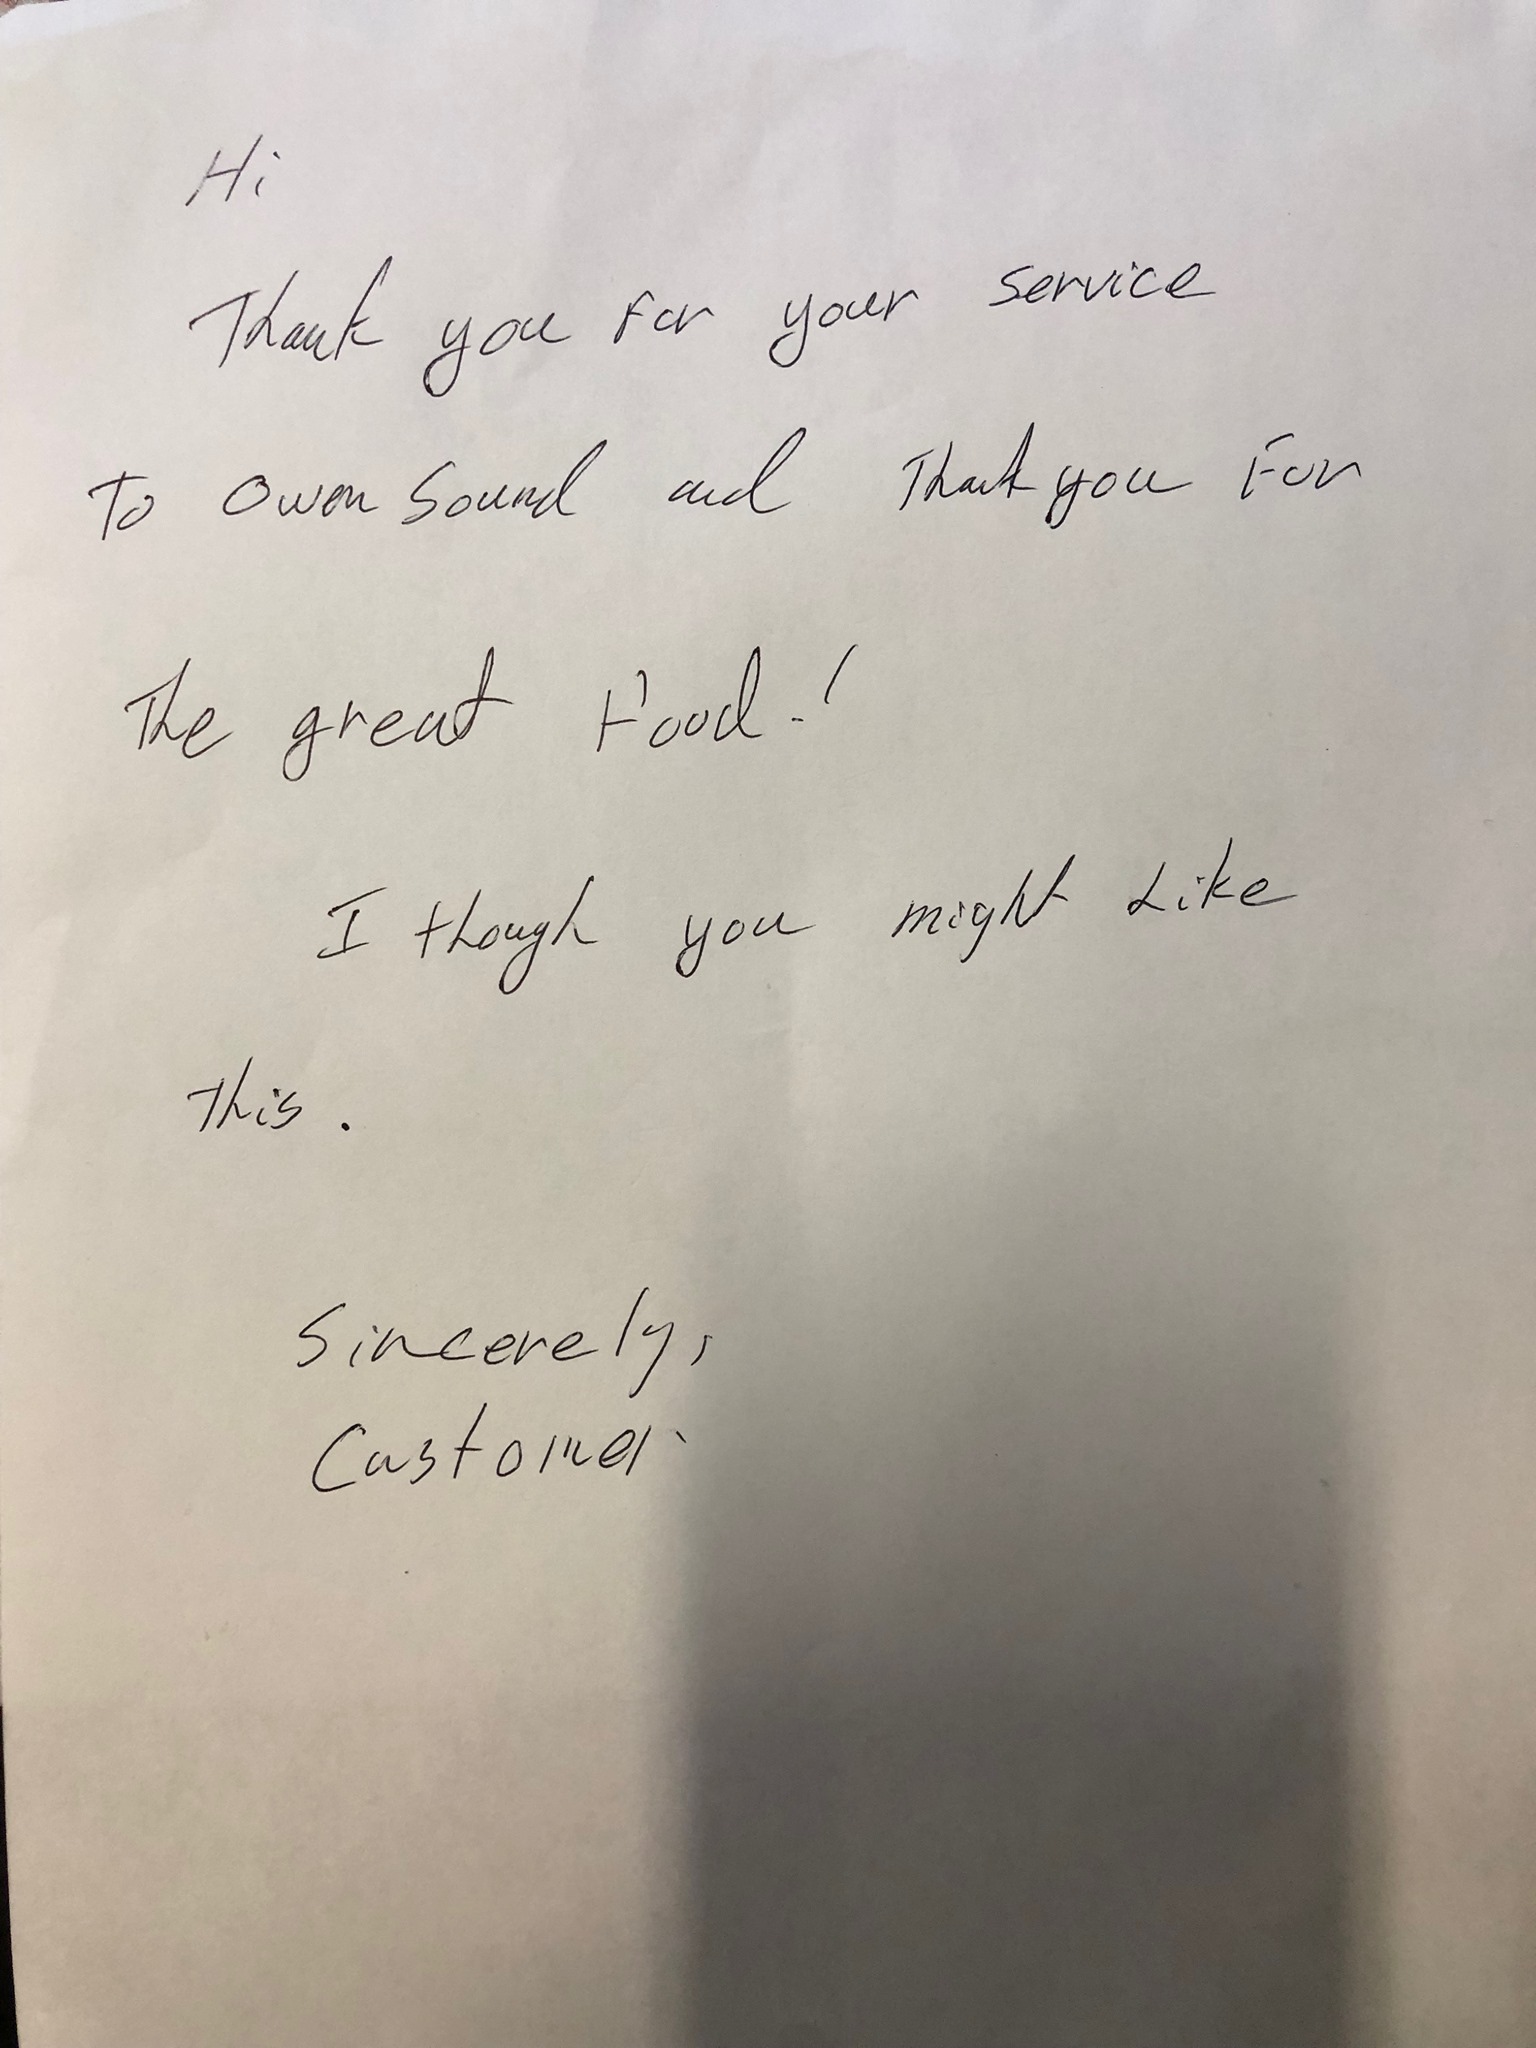 Hi
Thank you For your service
To Owen Sound and Thank you For
The great Food!
I though you might Like
This.
Sincerely,
Customer